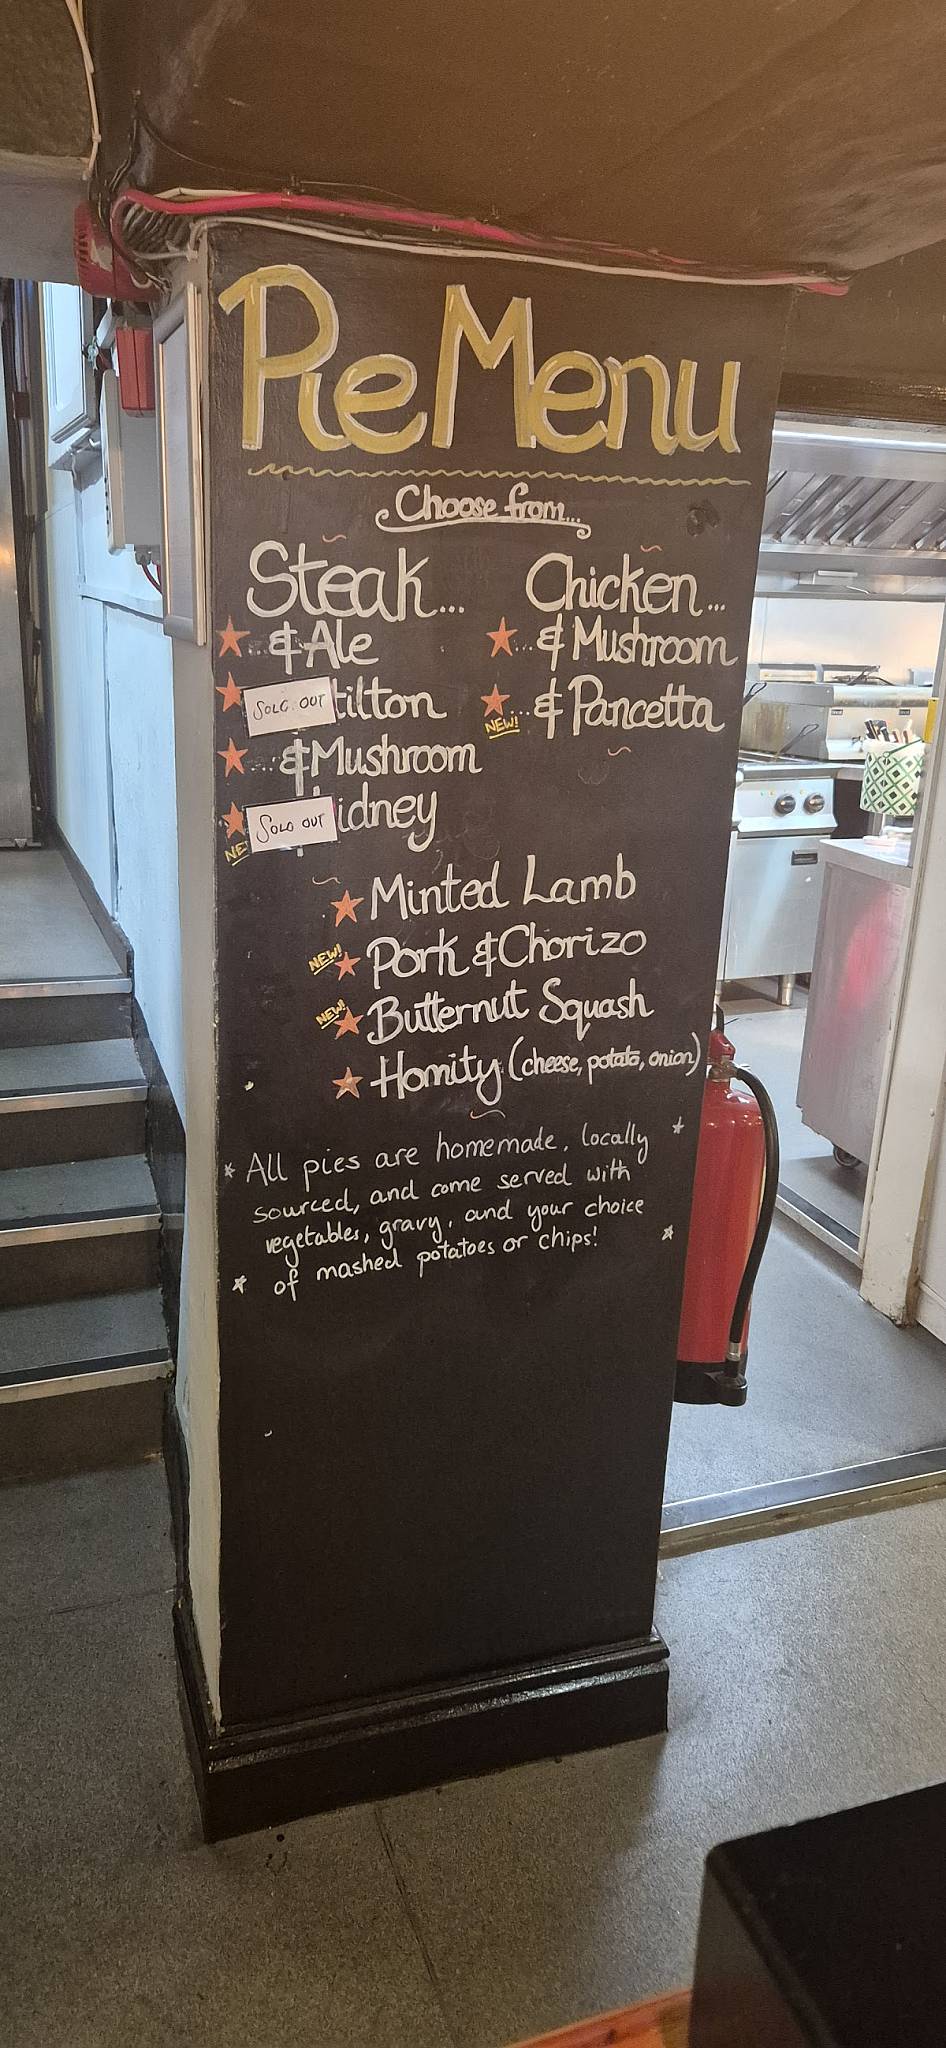 Pie Menu
Choose from...
Steak...
...& Ale
SOLD OUT tilton
...& Mushroom
SOLD OUT idney
NE
Chicken...
...& Mushroom
...& Pancetta
NEW!
Minted Lamb
NEW! Pork & Chorizo
NEW! Butternut Squash
Homity (cheese, potato, onion)
All pies are homemade, locally
sourced, and come served with
vegetables, gravy, and your choice
of mashed potatoes or chips!